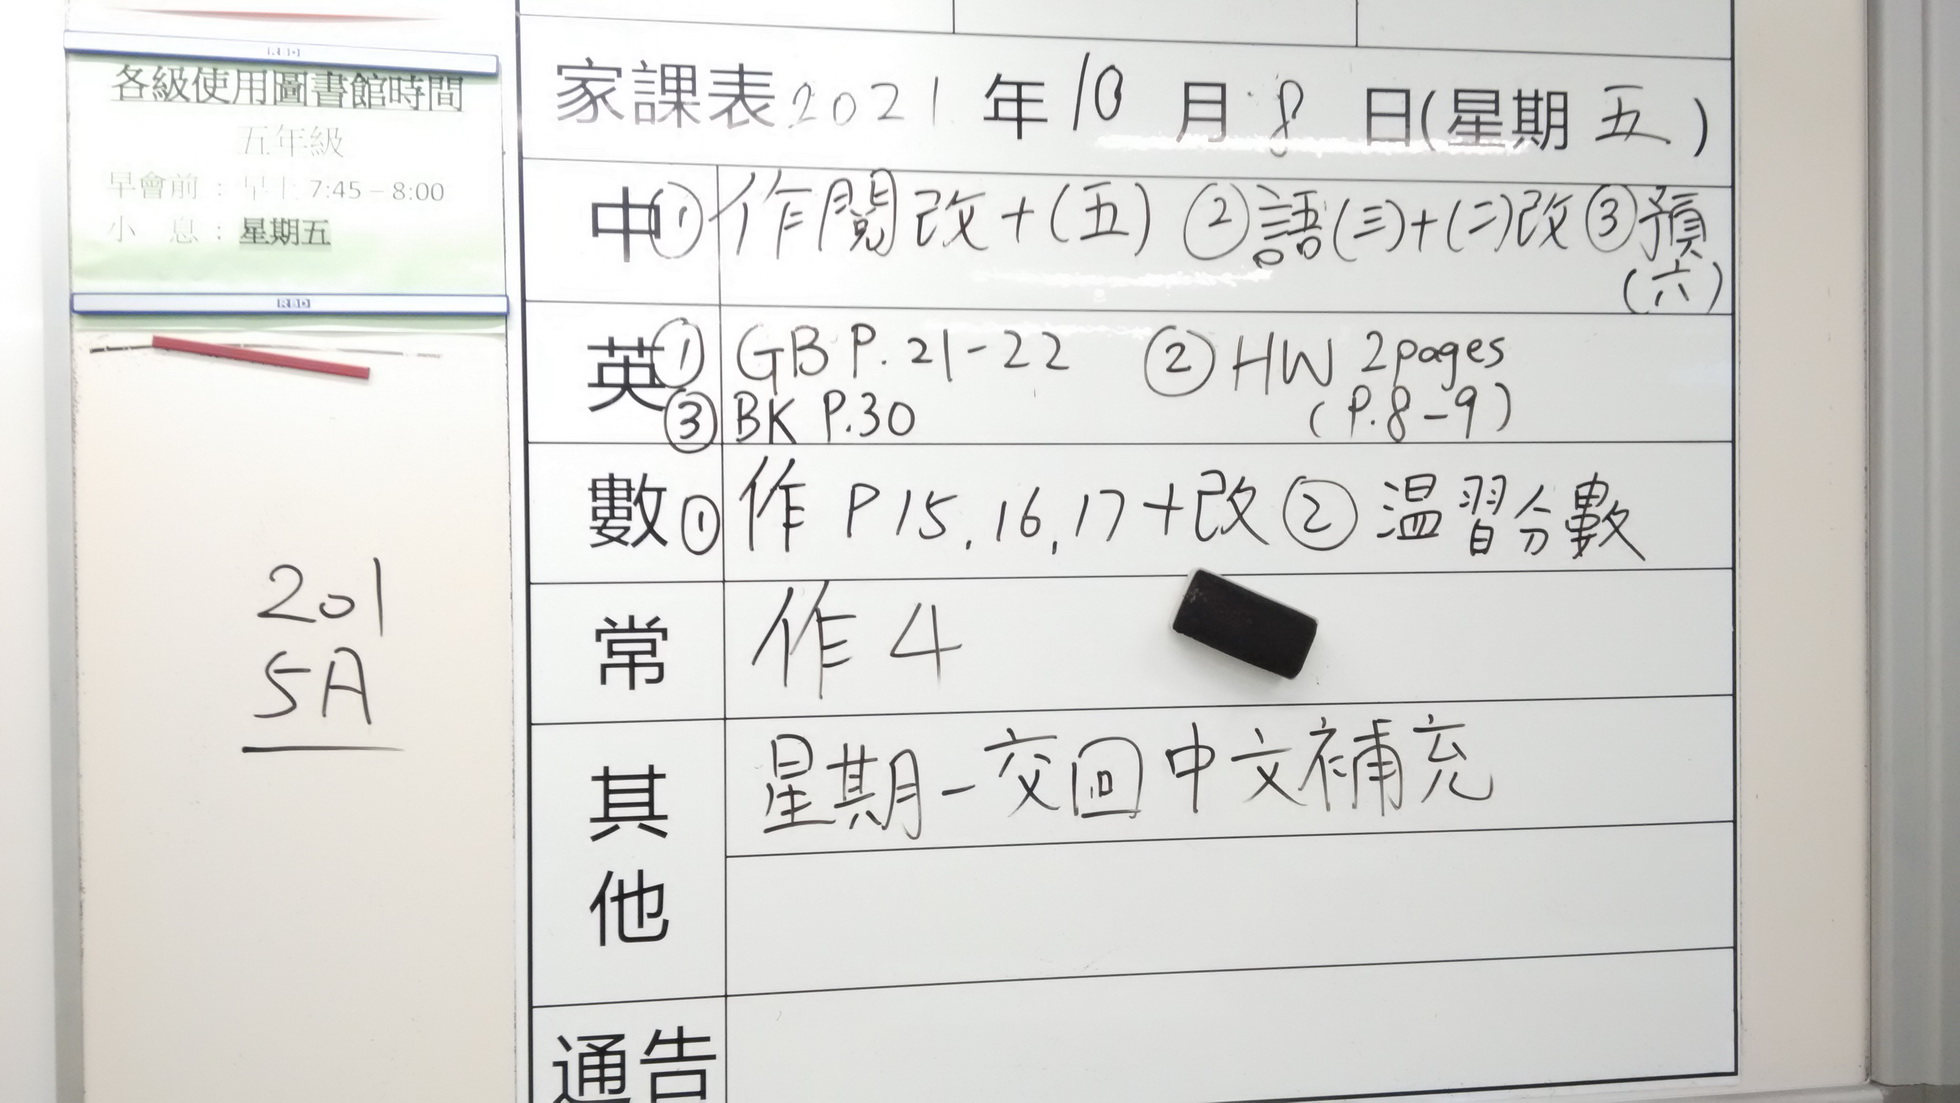 各級使用圖書館時間
五年級
早會前：早上 7:45 – 8:00
小 息：星期五
201
5A
家課表 2021 年 10 月 8 日(星期 五)
中 ① 作閱改+(五) ② 語(三)+(二)改 ③ 預
(六)
英 ① GB P.21-22 ② HW 2pages
③ BK P.30 (P.8-9)
數 ① 作 P15,16,17+改 ② 温習分數
常 作4
其他 星期一交回中文補充
通告